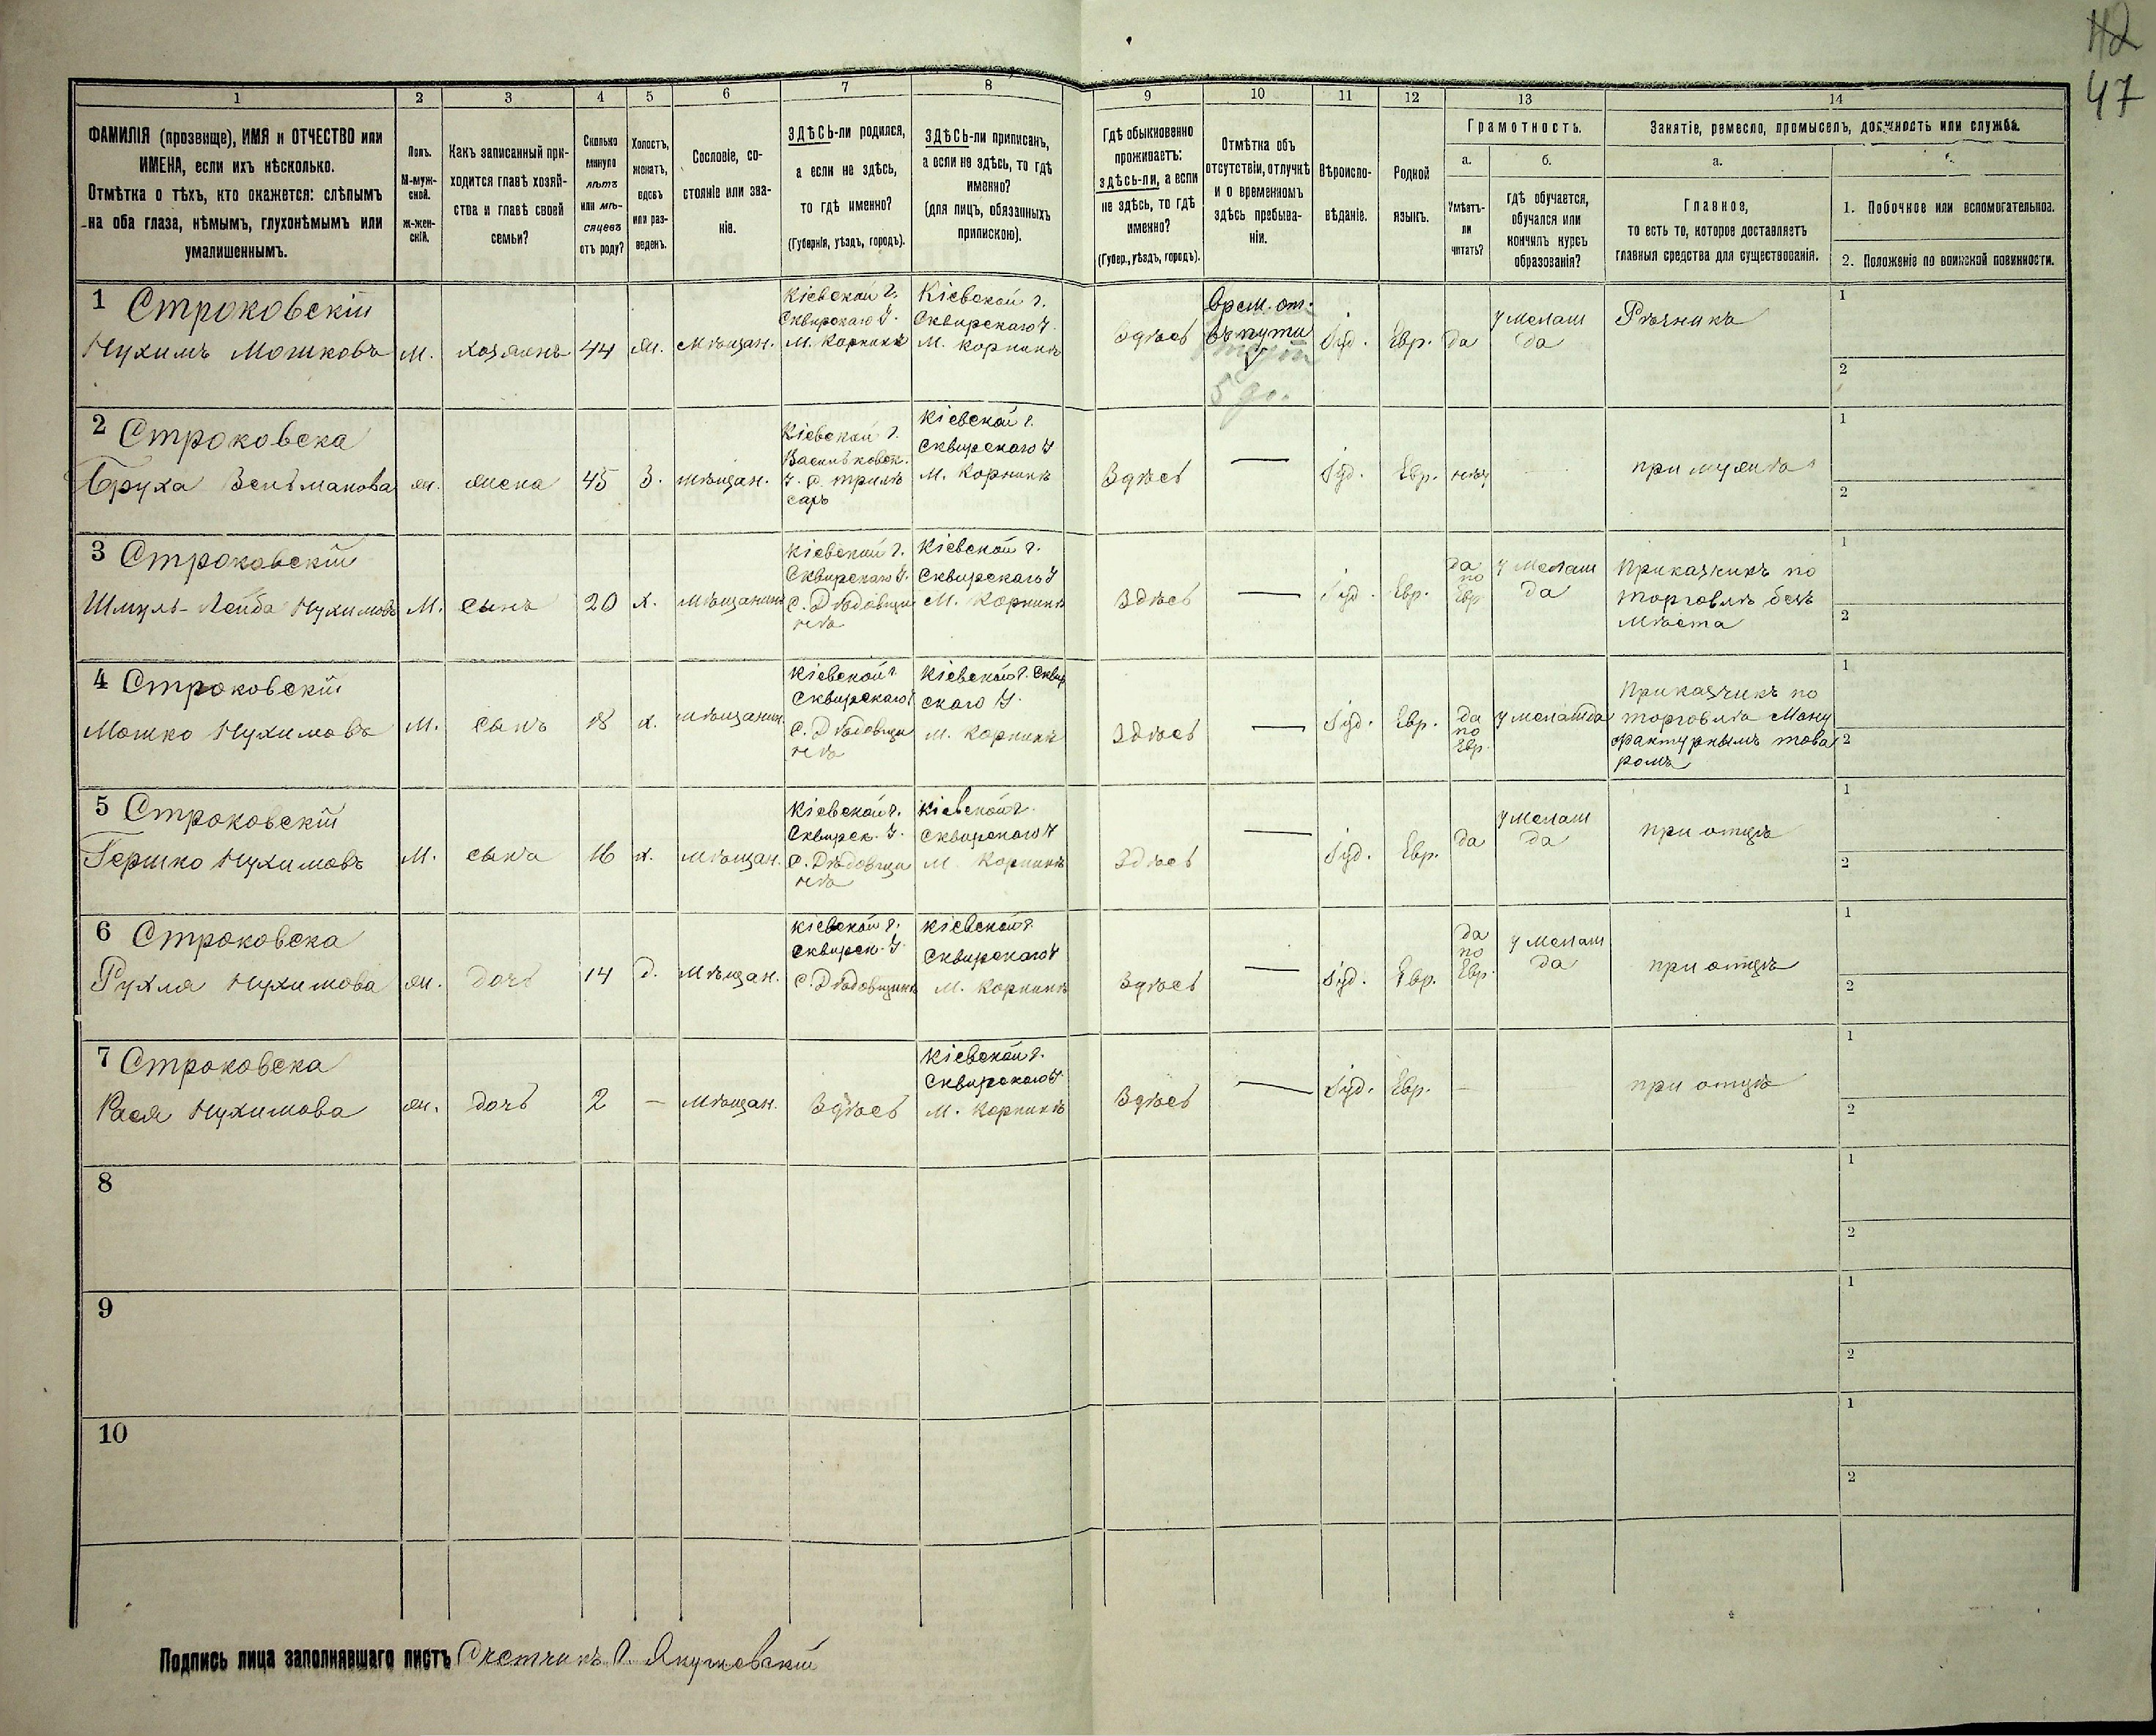 42
47
1
2
3
4
5
6
7
8
9
10
11
12
13
14
ФАМИЛІЯ (прозвище), ИМЯ и ОТЧЕСТВО или
ИМЕНА, если ихъ нѣсколько.
Отмѣтка о тѣхъ, кто окажется: слѣпымъ
на оба глаза, нѣмымъ, глухонѣмымъ или
умалишеннымъ.
Полъ.
М-муж-
ской.
ж-жен-
скій.
Какъ записанный при-
ходится главѣ хозяй-
ства и главѣ своей
семьи?
Сколько
минуло
лѣтъ
или мѣ-
сяцевъ
отъ роду?
Холостъ,
женатъ,
вдовъ
или раз-
веденъ.
Сословіе, со-
стояніе или зва-
ніе.
ЗДѢСЬ-ли родился,
а если не здѣсь,
то гдѣ именно?
(Губернія, уѣздъ, городъ).
ЗДѢСЬ-ли приписанъ,
а если не здѣсь, то гдѣ
именно?
(для лицъ, обязанныхъ
припискою).
Гдѣ обыкновенно
проживаетъ:
здѣсь-ли, а если
не здѣсь, то гдѣ
именно?
(Губер., уѣздъ, городъ).
Отмѣтка объ
отсутствіи, отлучкѣ
и о временномъ
здѣсь пребыва-
ніи.
Вѣроиспо-
вѣданіе.
Родной
языкъ.
Грамотность.
а.
Умѣетъ-
ли
читать?
б.
гдѣ обучается,
обучался или
кончилъ курсъ
образованія?
Занятіе, ремесло, промыселъ, должность или служба.
а.
Главное,
то есть то, которое доставляетъ
главныя средства для существованія.
1. Побочное или вспомогательное.
2. Положеніе по воинской повинности.
1 Строковскій
Нухимъ Мошковъ
М.
хозяинъ
44
ж.
Мѣщан.
Кіевской г.
Сквирскаго У.
М. Корнинѣ
Кіевской г.
Сквирскаго У.
М. Корнинѣ
Здѣсь
Врем. от.
въ пути
5 до.
Іуд.
Евр.
да
у Мелам
да
Рѣзникъ
1
2
2 Строковска
Бруха Зельманова
ж.
жена
45
З.
мѣщан.
Кіевской г.
Васильковск.
У. с. Трилѣ
сахъ
Кіевской г.
Сквирскаго У
М. Корнинѣ
Здѣсь
—
Іуд.
Евр.
нѣт
при мужѣ
1
2
3 Строковскій
Шмуль-Лейба Нухимовъ
М.
сынъ
20
х.
мѣщанинъ
Кіевской г.
Сквирскаго У.
С. Дѣдовщи
нѣ
Кіевской г.
Сквирскаго У
М. Корнинѣ
Здѣсь
—
Іуд.
Евр.
да
по
Евр
у Мелам
да
Приказчикъ по
торговлѣ безъ
мѣста
1
2
4 Строковскій
Мошко Нухимовъ
М.
сынъ
18
х.
мѣщанин
Кіевской г
Сквирскаго У
С. Дѣдовщи
нѣ
Кіевской г. Сквир
скаго У.
М. Корнинѣ
Здѣсь
—
Іуд.
Евр.
да
по
Евр.
у мелам да
Приказчикъ по
торговлѣ Ману
фактурнымъ това
ромъ
1
2
5 Строковскій
Гершко Нухимовъ
М.
сынъ
16
х.
мѣщан.
Кіевской г.
Сквирск. У.
С. Дѣдовщи
нѣ
Кіевской г.
Сквирскаго У
М. Корнинѣ
Здѣсь
—
Іуд.
Евр.
да
у мелам
да
при отцѣ
1
2
6 Строковска
Рухля Нухимова
ж.
дочь
14
д.
Мѣщан.
Кіевской г.
Сквирск. У.
С. Дѣдовщинѣ
Кіевской г.
Сквирскаго У
М. Корнинѣ
Здѣсь
—
Іуд.
Евр.
да
по
Евр.
у Мелам
да
при отцѣ
1
2
7 Строковска
Рася Нухимова
ж.
дочь
2
—
Мѣщан.
Здѣсь
Кіевской г.
Сквирскаго У.
М. Корнинѣ
Здѣсь
—
Іуд.
Евр.
—
при отцѣ
1
2
8
1
2
9
1
2
10
1
2
Подпись лица заполнявшаго листъ Счетчикъ